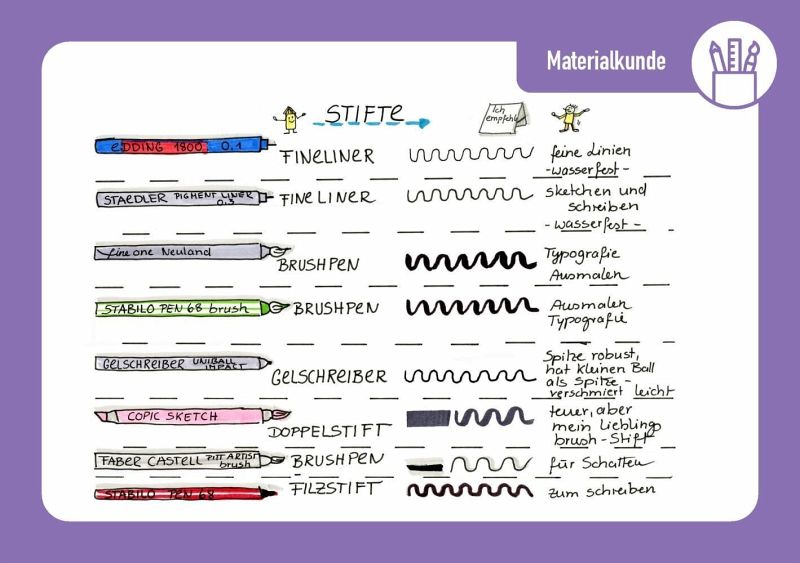 Materialkunde
STIFTE
Ich
empfehle
eDDING 1800 0.1
FINELINER
feine Linien
-wasserfest-
STAEDLER PIGMENT LINER
0,3
FINELINER
sketchen und
schreiben
-wasserfest-
fineone Neuland
BRUSHPEN
Typografie
Ausmalen
STABILO PEN 68 brush
BRUSHPEN
Ausmalen
Typografie
GELSCHREIBER UNIBALL
IMPACT
GELSCHREIBER
Spitze robust,
hat kleinen Ball
als Spitze -
verschmiert leicht
COPIC SKETCH
DOPPELSTIFT
teuer, aber
mein Lieblings
brush-Stift
FABER CASTELL PITT ARTIST
brush
BRUSHPEN
für Schatten
STABILO PEN 68
FILZSTIFT
zum schreiben